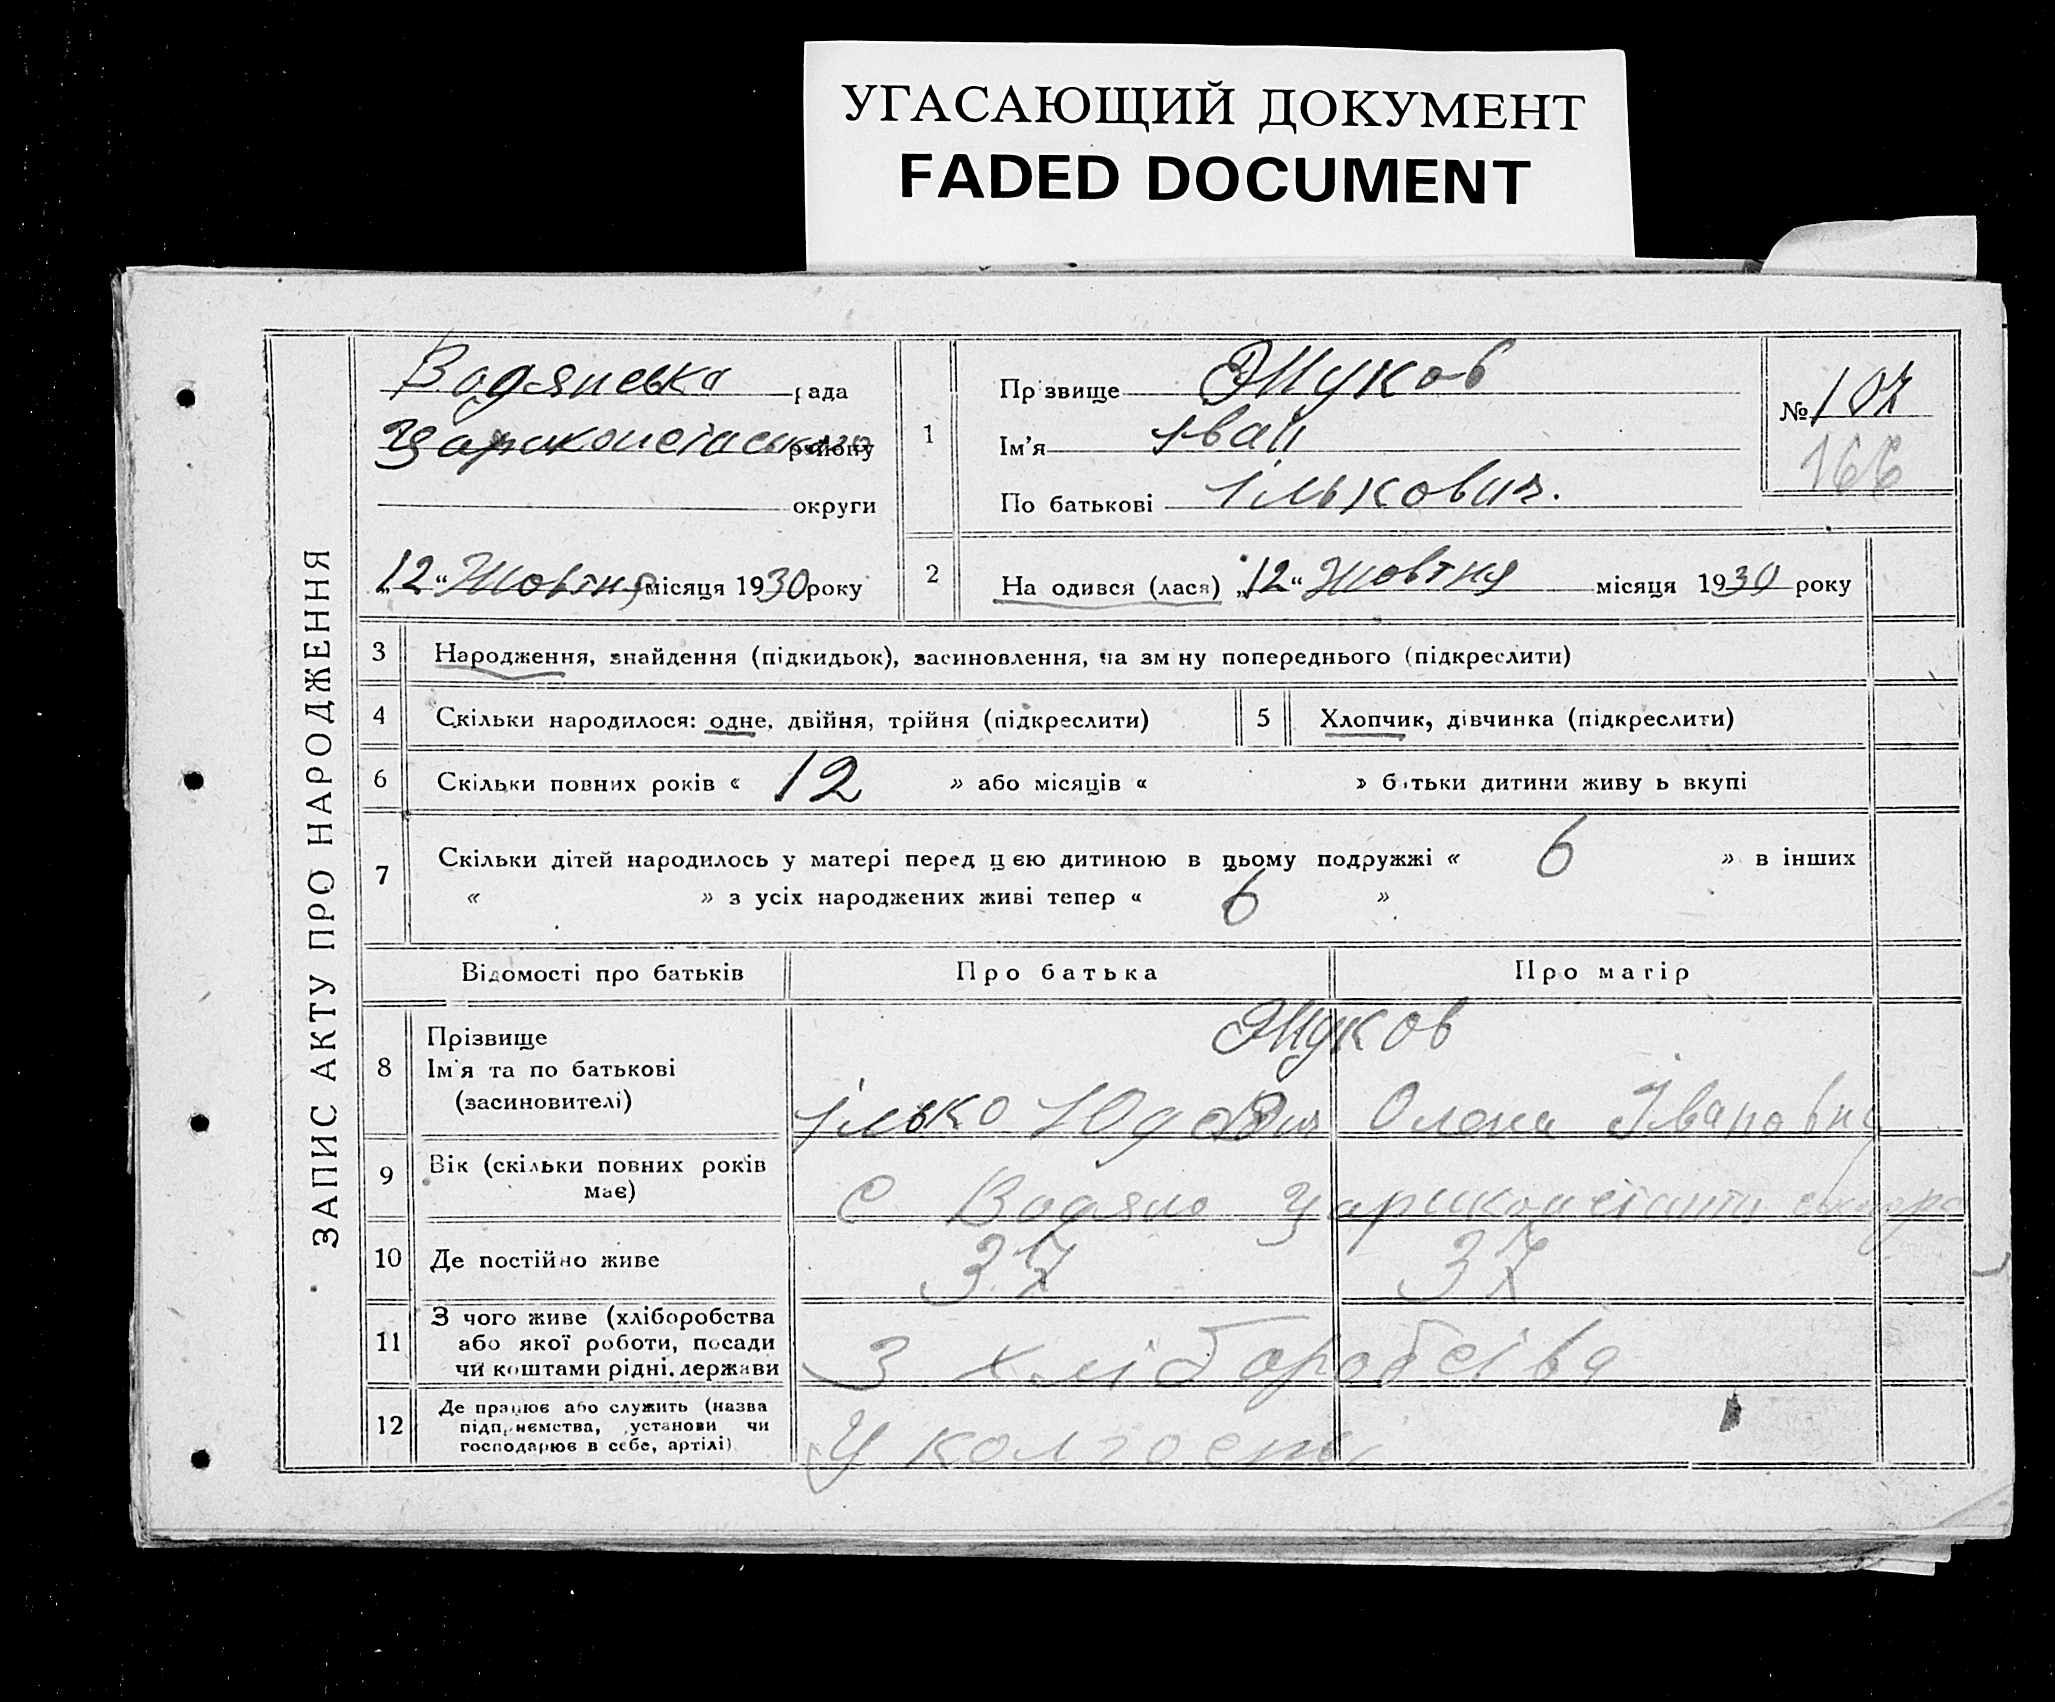 УГАСАЮЩИЙ ДОКУМЕНТ
FADED DOCUMENT
ЗАПИС АКТУ ПРО НАРОДЖЕННЯ
Водянська рада
району
округи
„12“ Жовтня місяця 1930 року
1
Пр звище Жуков
Ім'я Іван
По батькові Ількович.
№ 107
166
2
На одився (лася) „12“ Жовтня місяця 1930 року
3 Народження, знайдення (підкидьок), засиновлення, на зм ну попереднього (підкреслити)
4 Скільки народилося: одне, двійня, трійня (підкреслити)
5 Хлопчик, дівчинка (підкреслити)
6 Скільки повних років « 12 » або місяців « » б тьки дитини живу ь вкупі
7 Скільки дітей народилось у матері перед цією дитиною в цьому подружжі « 6 » в інших
« » з усіх народжених живі тепер « 6 »
Відомості про батьків Про батька Про матір
8 Прізвище
Ім'я та по батькові
(засиновителі)
Жуков
Ілько Юдович Олена Івановна
9 Вік (скільки повних років
має)
С Водяно
10 Де постійно живе 37 37
11 З чого живе (хліборобства
або якої роботи, посади
чи коштами рідні, держави
З хліборобства
12 Де працює або служить (назва
підприємства, установи чи
господарює в себе, артілі)
У колгоспі